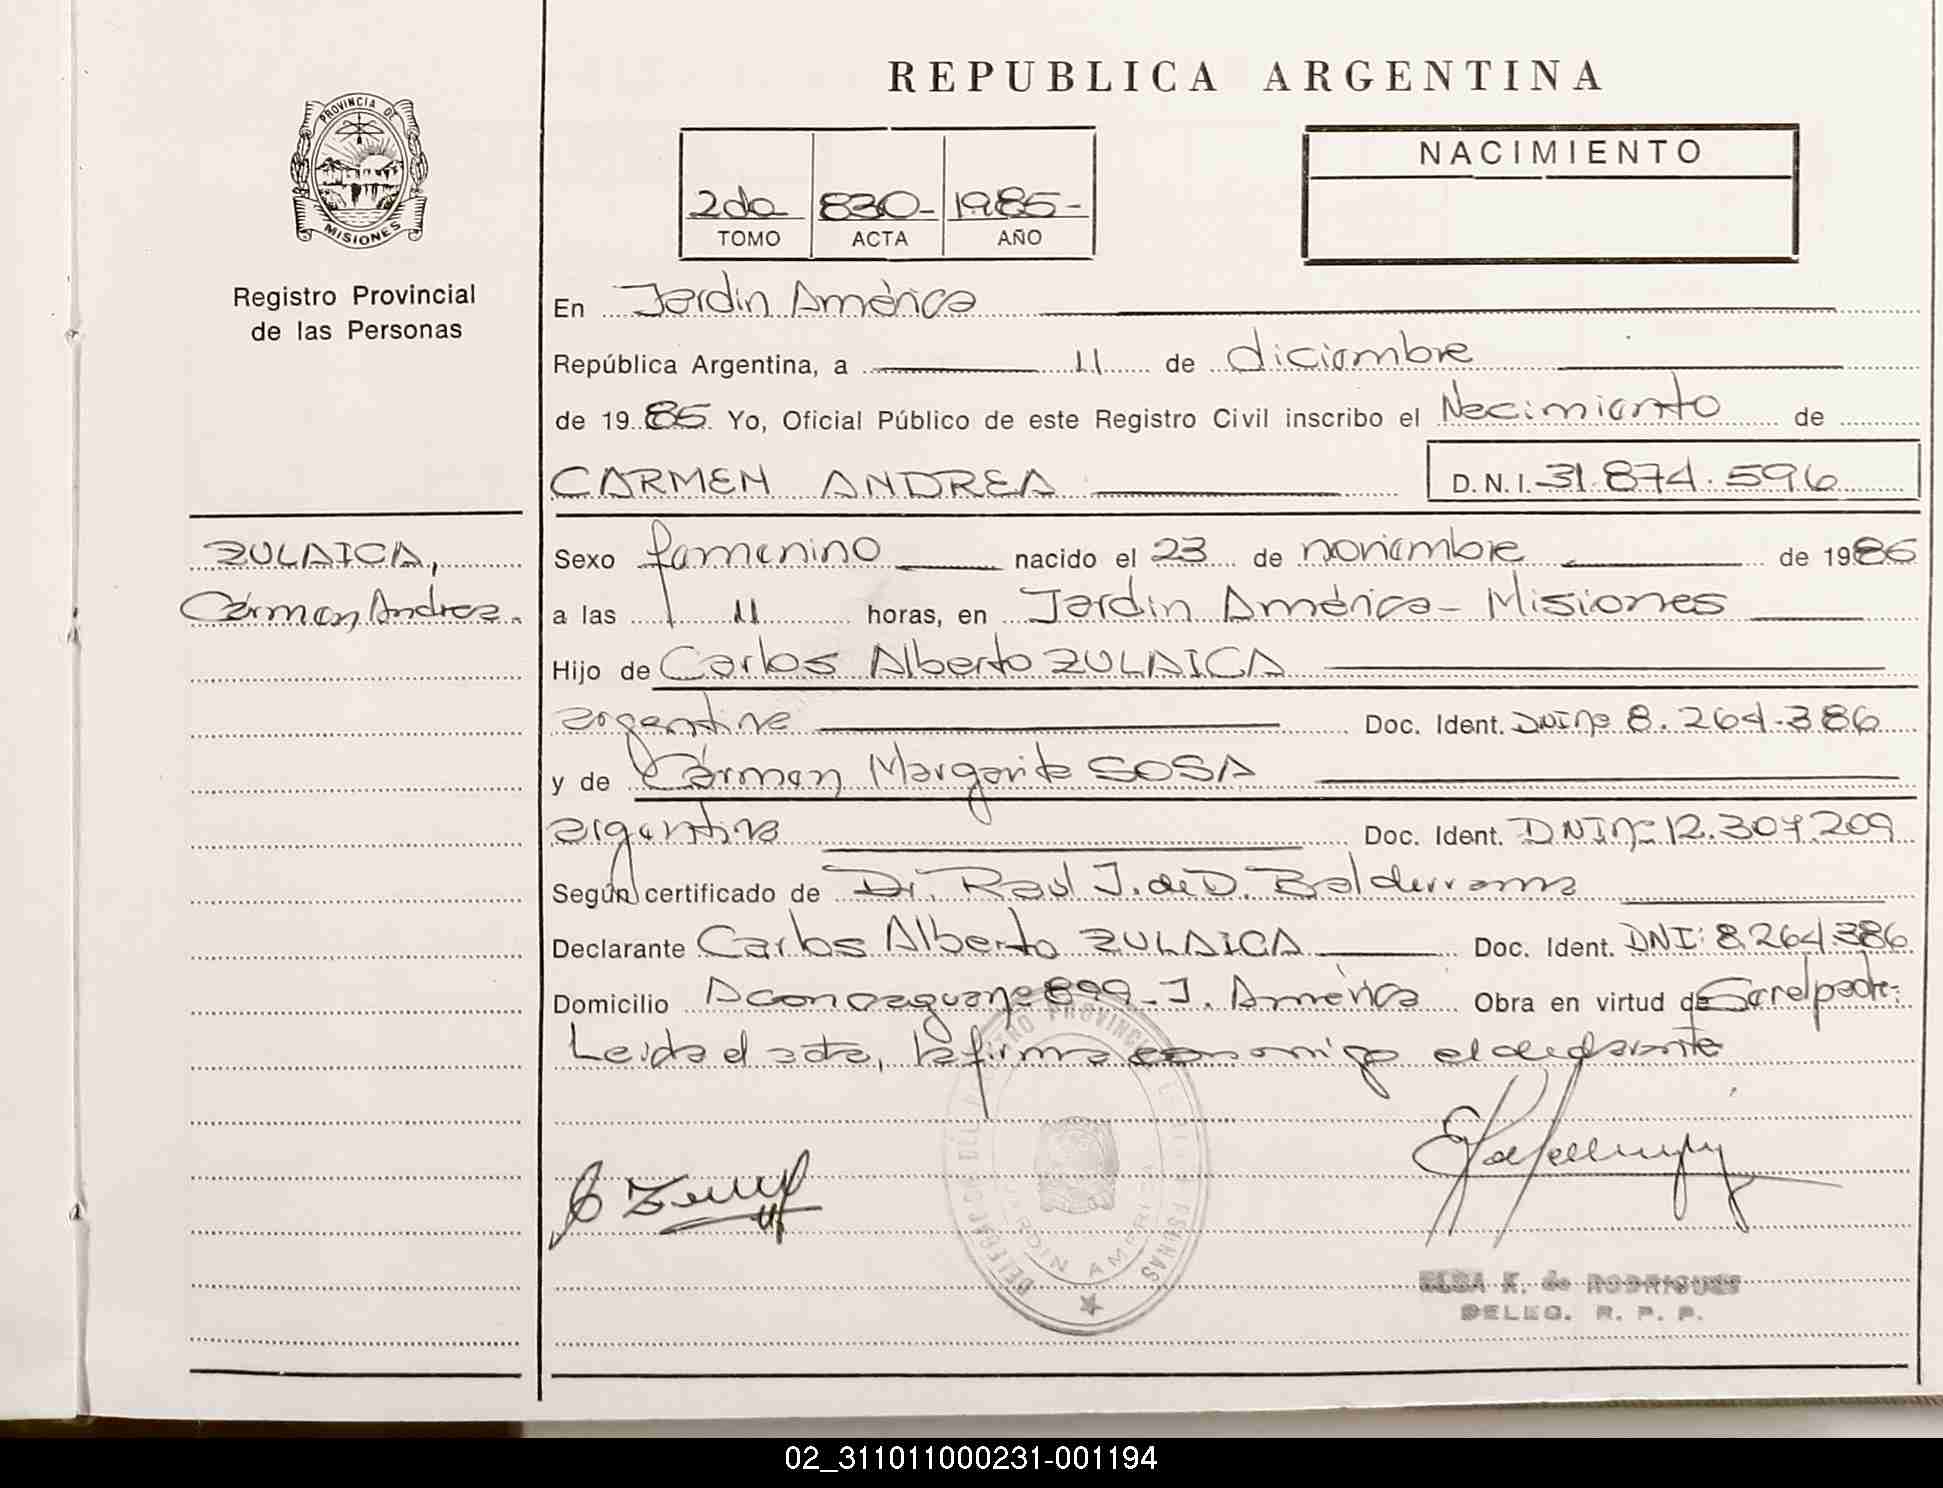 REPUBLICA ARGENTINA
PROVINCIA DE
MISIONES
Registro Provincial
de las Personas
2do 830- 1985-
TOMO ACTA AÑO
NACIMIENTO
En Jardín América
República Argentina, a 11 de diciembre
de 1985 Yo, Oficial Público de este Registro Civil inscribo el Nacimiento de
CARMEN ANDREA D.N.I. 31.874.596
ZULAICA,
Cármen Andrea.
Sexo femenino nacido el 23 de noviembre de 1985
a las 11 horas, en Jardín América - Misiones
Hijo de Carlos Alberto ZULAICA
argentina Doc. Ident. DNI nº 8.264.386
y de Cármen Margarita SOSA
argentina Doc. Ident. DNI nº 12.307.209
Según certificado de Dr. Raúl J. de D. Balderrama
Declarante Carlos Alberto ZULAICA Doc. Ident. DNI: 8.264.386
Domicilio Aconcagua nº 899 - J. América Obra en virtud de Ser el padre.
Leida el acta, la firma conmigo el declarante
JARDIN AMERICA
ELSA K. de RODRIGUES
DELEG. R. P. P.
02_311011000231-001194